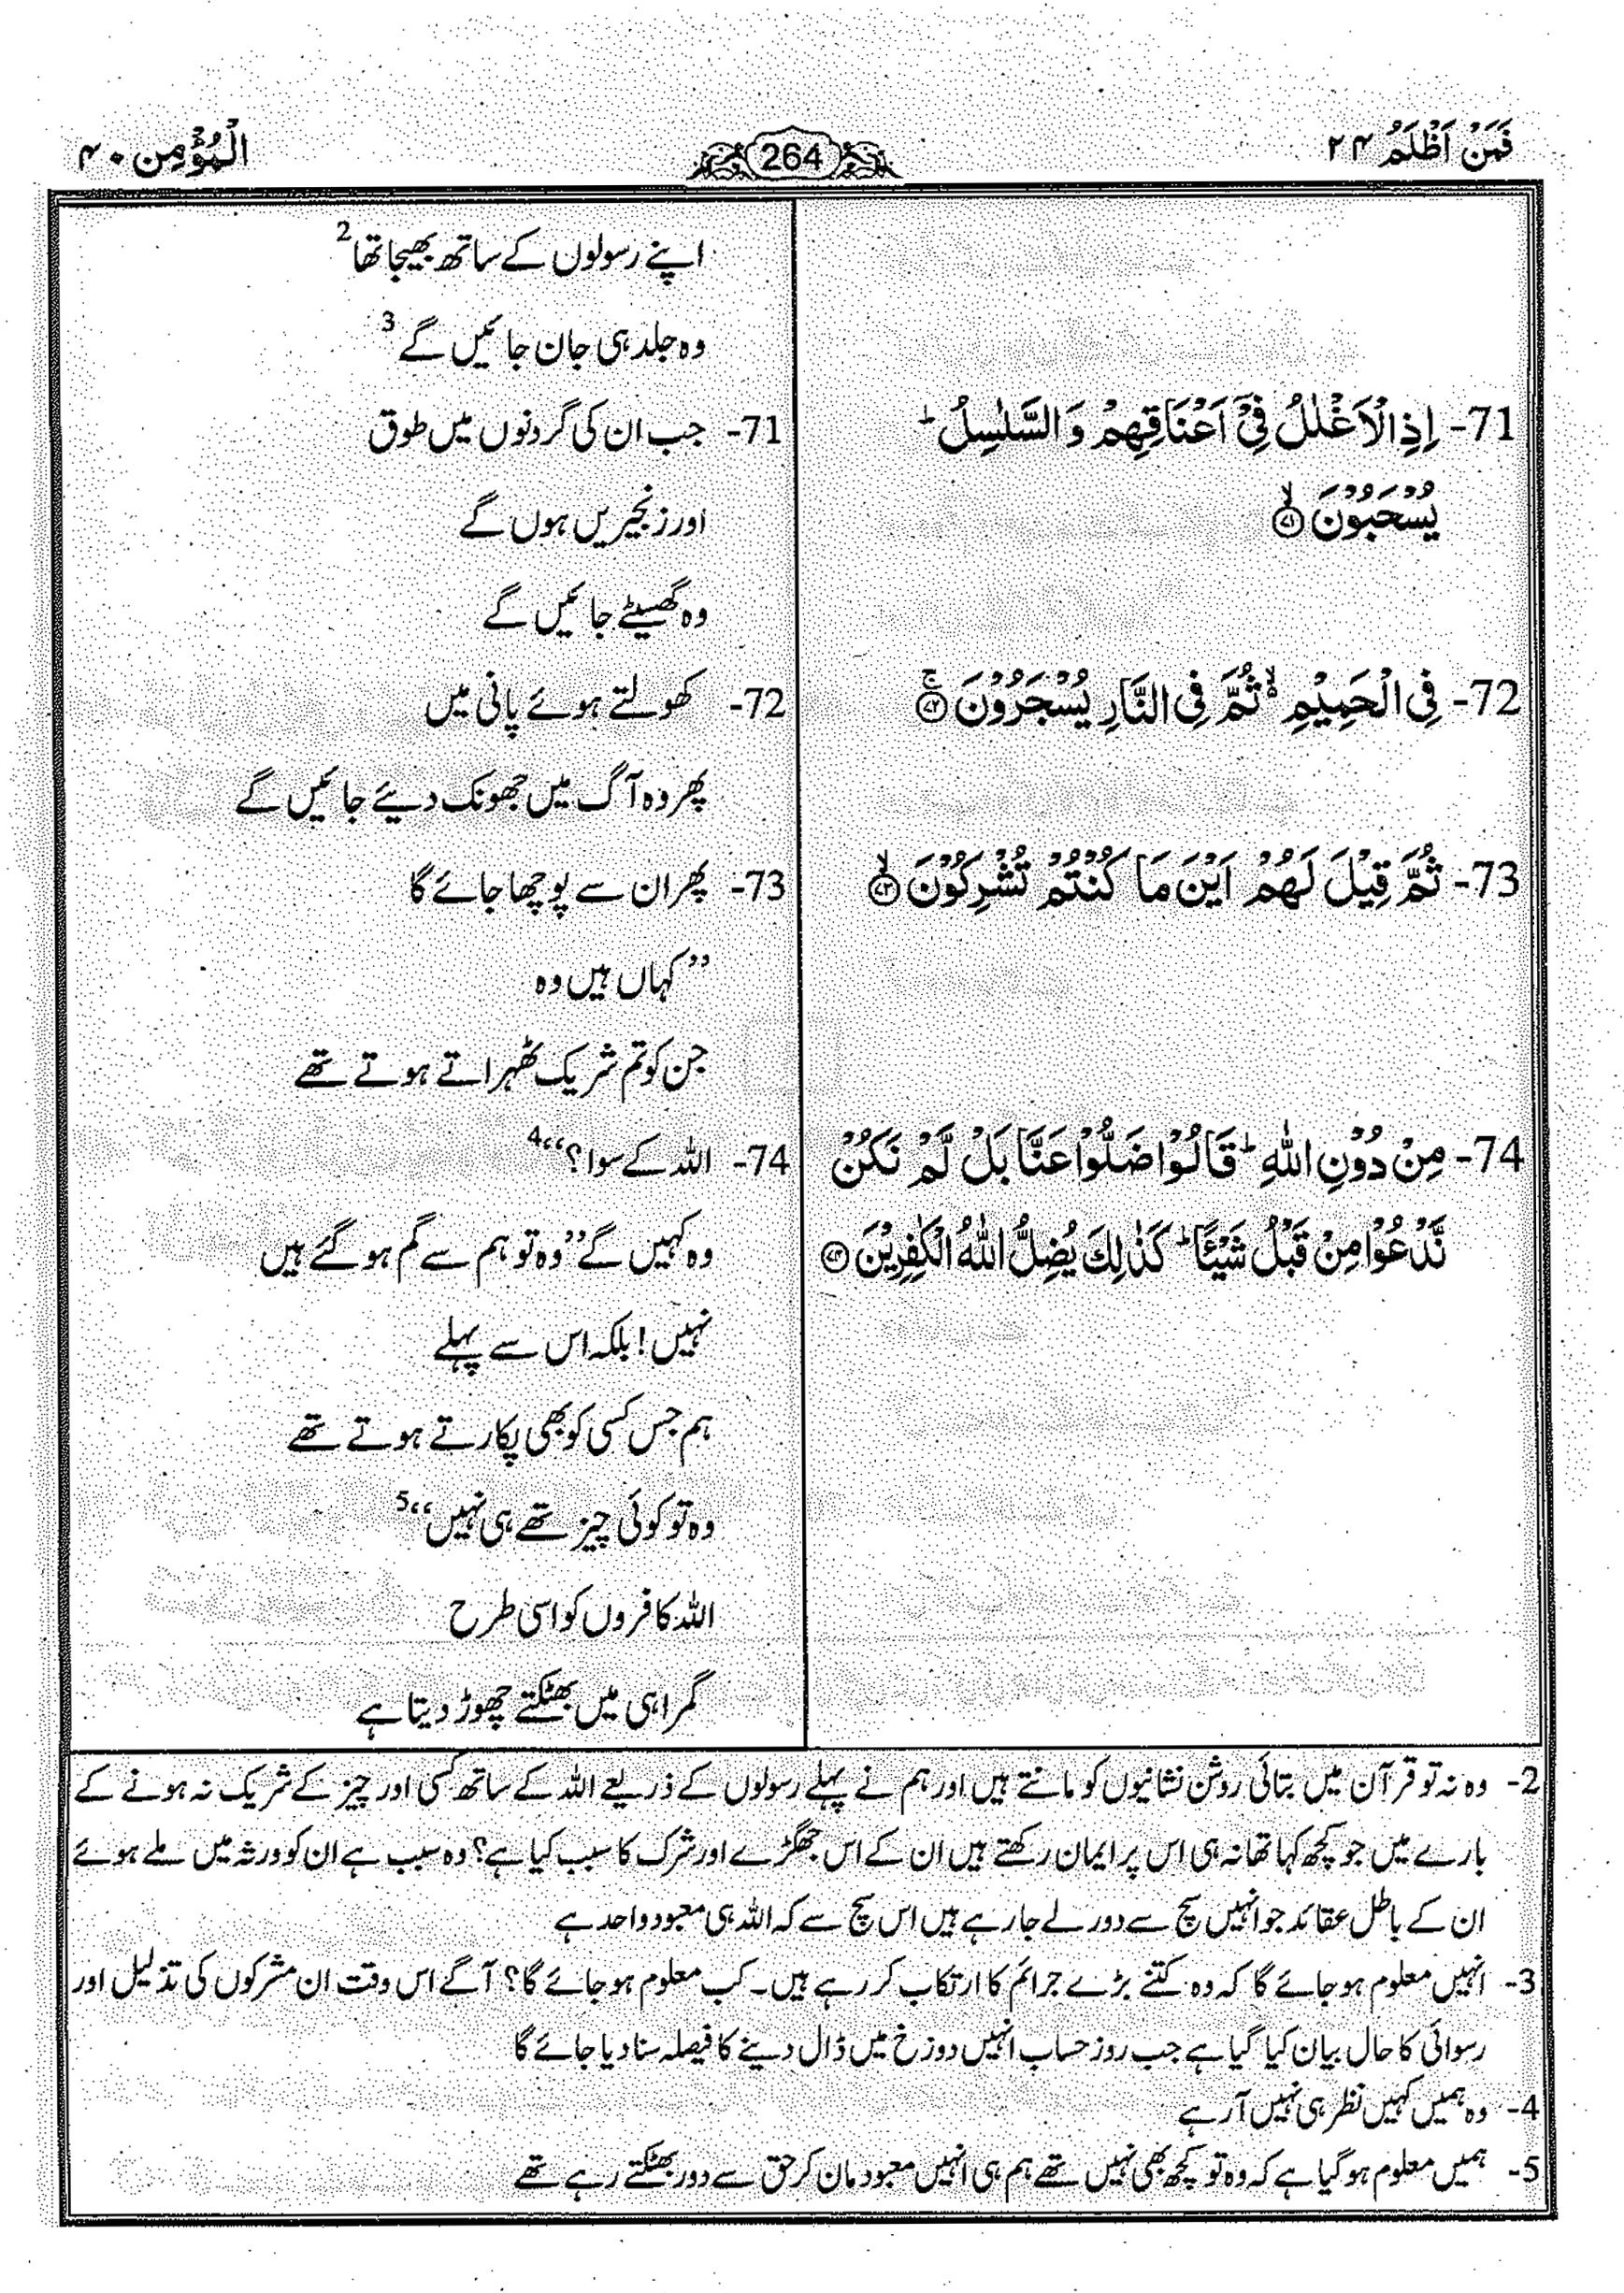 فَمَنْ اَظْلَمُ ۲۴
264
الْمُؤْمِن ۴۰
71- اِذِ الْاَغْلٰلُ فِیْۤ اَعْنَاقِهِمْ وَ السَّلٰسِلُ ؕ
یُسْحَبُوْنَ ۙ﴿۷۱﴾
72- فِی الْحَمِیْمِ ۬ۙ ثُمَّ فِی النَّارِ یُسْجَرُوْنَ ۚ﴿۷۲﴾
73- ثُمَّ قِیْلَ لَهُمْ اَیْنَ مَا كُنْتُمْ تُشْرِكُوْنَ ۙ﴿۷۳﴾
74- مِنْ دُوْنِ اللّٰهِ ؕ قَالُوْا ضَلُّوْا عَنَّا بَلْ لَّمْ نَكُنْ
نَّدْعُوْا مِنْ قَبْلُ شَیْـًٔا ؕ كَذٰلِكَ یُضِلُّ اللّٰهُ الْكٰفِرِیْنَ ﴿۷۴﴾
اپنے رسولوں کے ساتھ بھیجا تھا2
وہ جلد ہی جان جائیں گے3
71- جب ان کی گردنوں میں طوق
اور زنجیریں ہوں گے
وہ گھسیٹے جائیں گے
72- کھولتے ہوئے پانی میں
پھر وہ آگ میں جھونک دیئے جائیں گے
73- پھر ان سے پوچھا جائے گا
’’کہاں ہیں وہ
جن کو تم شریک ٹھہراتے ہوتے تھے
74- اللہ کے سوا؟‘‘4
وہ کہیں گے ’’وہ تو ہم سے گم ہو گئے ہیں
نہیں! بلکہ اس سے پہلے
ہم جس کسی کو بھی پکارتے ہوتے تھے
وہ تو کوئی چیز تھے ہی نہیں‘‘5
اللہ کافروں کو اسی طرح
گمراہی میں بھٹکتے چھوڑ دیتا ہے
2- وہ نہ تو قرآن میں بتائی روشن نشانیوں کو مانتے ہیں اور ہم نے پہلے رسولوں کے ذریعے اللہ کے ساتھ کسی اور چیز کے شریک نہ ہونے کے
بارے میں جو کچھ کہا تھا نہ ہی اس پر ایمان رکھتے ہیں ان کے اس جھگڑے اور شرک کا سبب کیا ہے؟ وہ سبب ہے ان کو ورثہ میں ملے ہوئے
ان کے باطل عقائد جو انہیں سچ سے دور لے جا رہے ہیں اس سچ سے کہ اللہ ہی معبود واحد ہے
3- انہیں معلوم ہو جائے گا کہ وہ کتنے بڑے جرائم کا ارتکاب کر رہے ہیں۔ کب معلوم ہو جائے گا؟ آگے اس وقت ان مشرکوں کی تذلیل اور
رسوائی کا حال بیان کیا گیا ہے جب روز حساب انہیں دوزخ میں ڈال دینے کا فیصلہ سنا دیا جائے گا
4- وہ ہمیں کہیں نظر ہی نہیں آ رہے
5- ہمیں معلوم ہو گیا ہے کہ وہ تو کچھ بھی نہیں تھے ہم ہی انہیں معبود مان کر حق سے دور بھٹکتے رہے تھے